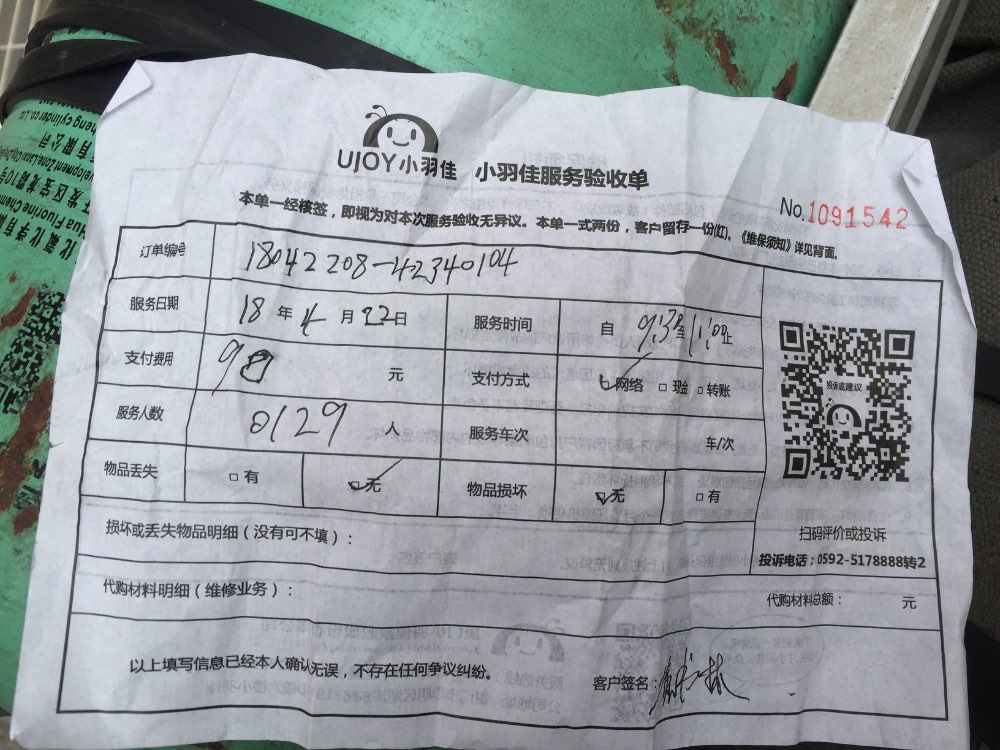 UJOY小羽佳 小羽佳服务验收单
No.1091542
本单一经核签，即视为对本次服务验收无异议。本单一式两份，客户留存一份(红)。《维保须知》详见背面。
订单编号 18042208-42340104
服务日期 18年4月22日 服务时间 自 9:30至11:00止
支付费用 元 支付方式 网络 □现金 □转账
服务人数 0129 人 服务车次 车/次
物品丢失 □有 □无 物品损坏 □无 □有
投诉或建议
扫码评价或投诉
投诉电话：0592-5178888转2
损坏或丢失物品明细（没有可不填）：
代购材料明细（维修业务）： 代购材料总额： 元
以上填写信息已经本人确认无误，不存在任何争议纠纷。
客户签名：